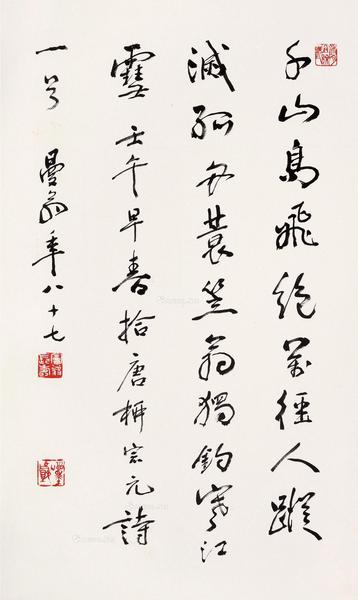 千山鳥飛絕萬徑人蹤
滅孤舟蓑笠翁獨釣寒江
雪壬午早春拾唐柳宗元詩
一首曼翁年八十七